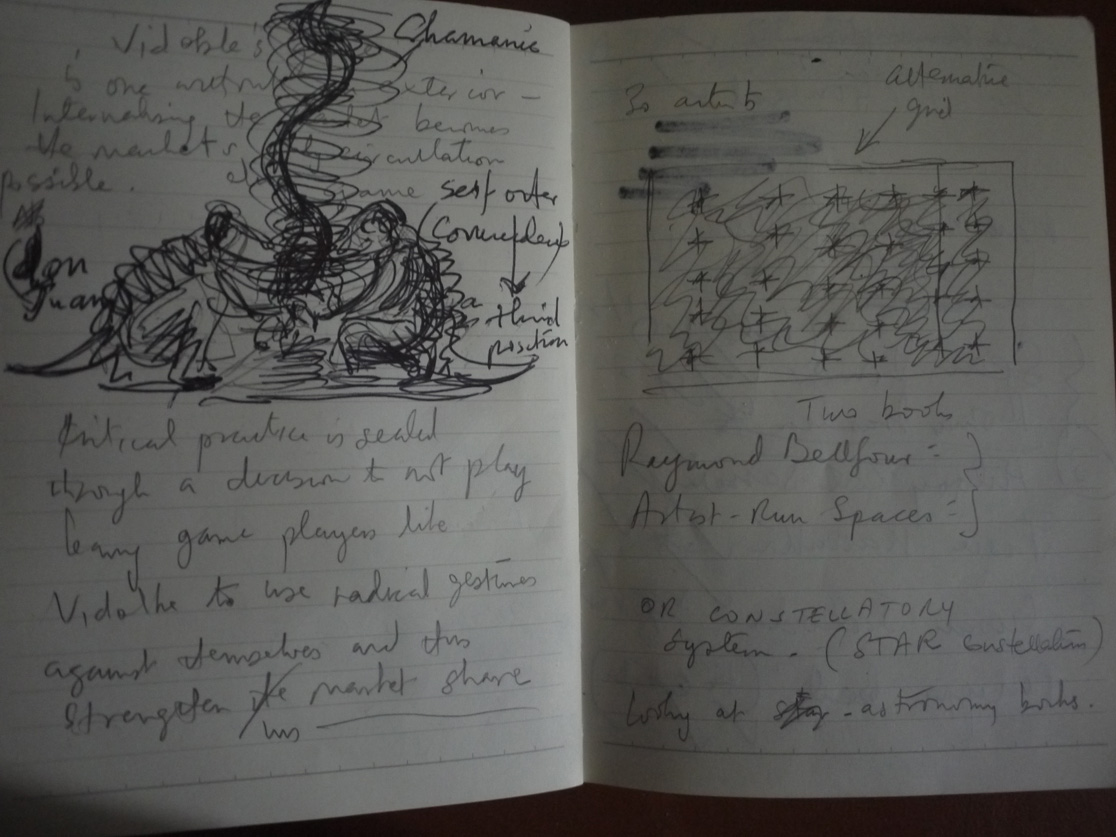 Vidokle's
is one without exterior –
Internalising the market becomes
the market's circulation
possible.
Chamanic
same serpouter
Don
Juan
a third
position
Critical practice is sealed
through a decision to not play
leaving game players like
Vidolke to use radical gestures
against themselves and thus
strengthen the market share
his
30 artists
alternative
grid
Two books
Raymond Bellfour :
Artist-Run Spaces :
OR CONSTELLATORY
System. (STAR Constellation)
Looking at astronomy books.